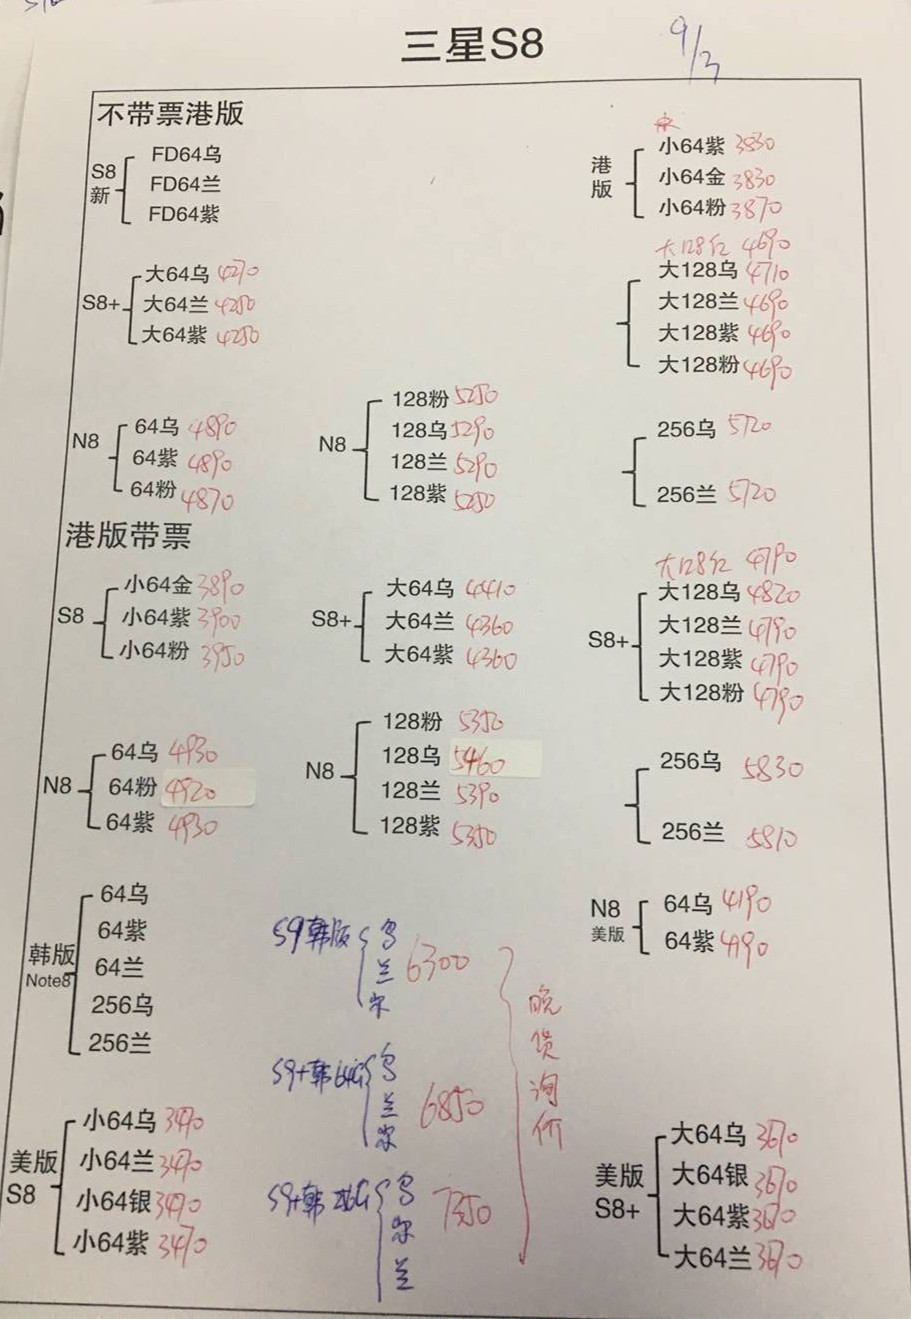 三星S8
9/3
不带票港版
S8
新
FD64乌
FD64兰
FD64紫
港
版
小64紫 3830
小64金 3830
小64粉 3870
S8+
大64乌 4270
大64兰 4250
大64紫 4250
大128红 4690
大128乌 4710
大128兰 4690
大128紫 4690
大128粉 4690
N8
64乌 4890
64紫 4890
64粉 4870
N8
128粉 5250
128乌 5290
128兰 5290
128紫 5250
256乌 5720
256兰 5720
港版带票
S8
小64金 3890
小64紫 3900
小64粉 3950
S8+
大64乌 4410
大64兰 4360
大64紫 4360
大128红 4790
S8+
大128乌 4820
大128兰 4790
大128紫 4790
大128粉 4790
N8
64乌 4930
64粉 4920
64紫 4930
N8
128粉 5350
128乌 5460
128兰 5390
128紫 5350
256乌 5830
256兰 5810
韩版
Note8
64乌
64紫
64兰
256乌
256兰
S9韩版
乌
兰
紫
6300
N8
美版
64乌 4190
64紫 4190
S9+韩64G
乌
兰
紫
6850
S9+韩256G
乌
紫
兰
7350
晚货询价
美版
S8
小64乌 3470
小64兰 3470
小64银 3470
小64紫 3470
美版
S8+
大64乌 3670
大64银 3670
大64紫 3670
大64兰 3670